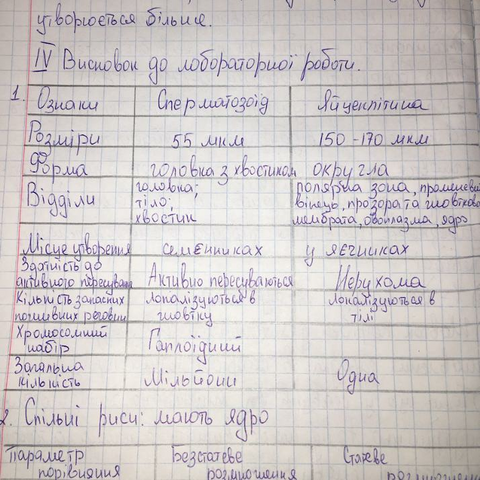 утворюється більше.
IV Висновок до лабораторної роботи.
1.
Ознаки Сперматозоїд Яйцеклітина
Розміри 55 мкм 150-170 мкм
Форма головка з хвостиком округла
Відділи головка; тіло; хвостик полярна зона, променевий вінець, прозора та жовткова мембрата, овоплазма, ядро
Місце утворення семєнниках у яєчниках
Здатність до активного пересування Активно пересуваються Нерухома
Кількість запасних поживних речовин локалізуються в жовтку локалізуються в тілі
Хромосомний набір Гаплоїдний
Загальна кількість Мільйони Одна
2. Спільні риси: мають ядро
Параметр порівняння Безстатеве розмноження Статеве розмноження